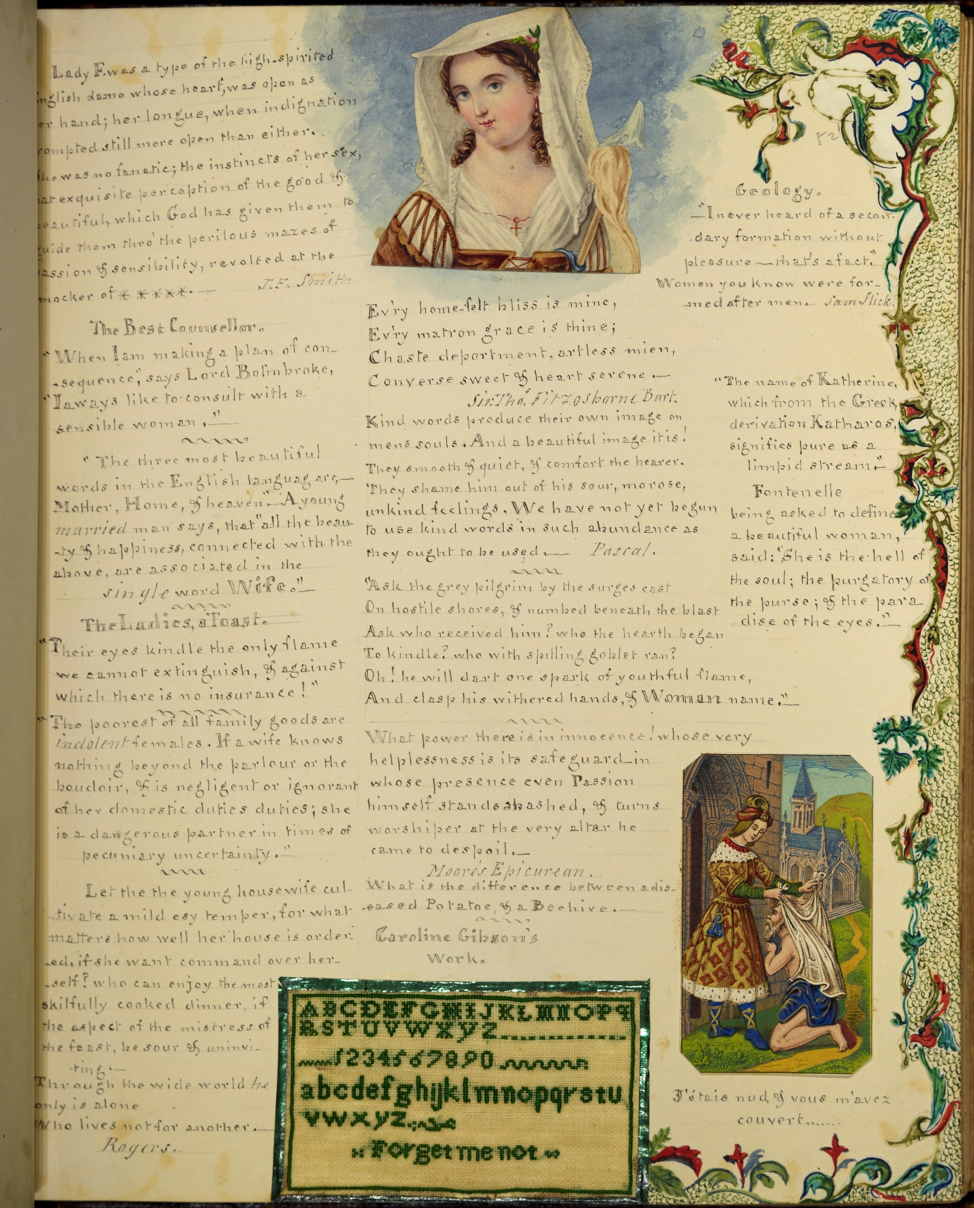 Lady F. was a type of the high-spirited
nglish dame whose heart, was open as
er hand; her tongue, when indignation
ompted still more open than either.
he was no fanatic; the instincts of her sex,
at exquisite perception of the good &
eautiful, which God has given them to
uide them thro' the perilous mazes of
assion & sensibility, revolted at the
mocker of ✳ ✳✳✳✳. —
J.F. Smith
The Best Counsellor.
"When I am making a plan of con-
-sequence," says Lord Bolinbroke,
"I aways like to consult with a
sensible woman." —
"The three most beautiful
words in the English languag are,—
Mother, Home, & heaven". A young
married man says, that "all the beau-
-ty & happiness, connected with the
above, are associated in the
single word Wife." —
The Ladies, a Toast.
"Their eyes kindle the only flame
we cannot extinguish, & against
which there is no insurance!"
"The poorest of all family goods are
indolent females. If a wife knows
nothing beyond the parlour or the
boudoir, & is negligent or ignorant
of her domestic duties duties; she
is a dangerous partner in times of
pecuniary uncertainty."
Let the the young housewife cul-
-tivate a mild esy temper, for what
matters how well her house is order-
-ed, if she want command over her-
-self? who can enjoy the most
skilfully cooked dinner, if
the aspect of the mistress of
the feast, be sour & uninvi-
-ting.—
Through the wide world he
only is alone
Who lives not for another. —
Rogers. —
Ev'ry home-felt bliss is mine,
Ev'ry matron grace is thine;
Chaste deportment, artless mien,
Converse sweet & heart serene. —
Sir Thos. Fitzosborne Bart.
Kind words produce their own image on
mens souls. And a beautiful image it is!
They smooth & quiet, & comfort the hearer.
They shame him out of his sour, morose,
unkind feelings. We have not yet begun
to use kind words in such abundance as
they ought to be used. — Pascal.
"Ask the grey pilgrim by the surges cast
On hostile shores, & numbed beneath the blast
Ask who received him? who the hearth began
To kindle? who with spilling goblet ran?
Oh! he will dart one spark of youthful flame,
And clasp his withered hands, & Woman name." —
What power there is in innocence! whose very
helplessness is its safeguard—in
whose presence even Passion
himself stands abashed, & turns
worshiper at the very altar he
came to despoil. —
Moore's Epicurean.
What is the difference between a dis-
-eased Potatoe, & a Beehive. —
Caroline Gibson's
Work.
ABCDEFGHIJKLMNOPQ
RSTUVWXYZ
1234567890
abcdefghijklmnopqrstu
vwxyz
Forget me not
52
Geology.
—"I never heard of a secon-
-dary formation without
pleasure — that's a fact."
Women you know were for-
-med after men. Sam Slick.
"The name of Katherine,
which from the Greek
derivation Katharos,
signifies pure as a
limpid stream."
Fontenelle
being asked to define
a beautiful woman,
said: "She is the hell of
the soul; the purgatory of
the purse; & the para
dise of the eyes." —
J'étais nud, & vous m'avez
couvert......